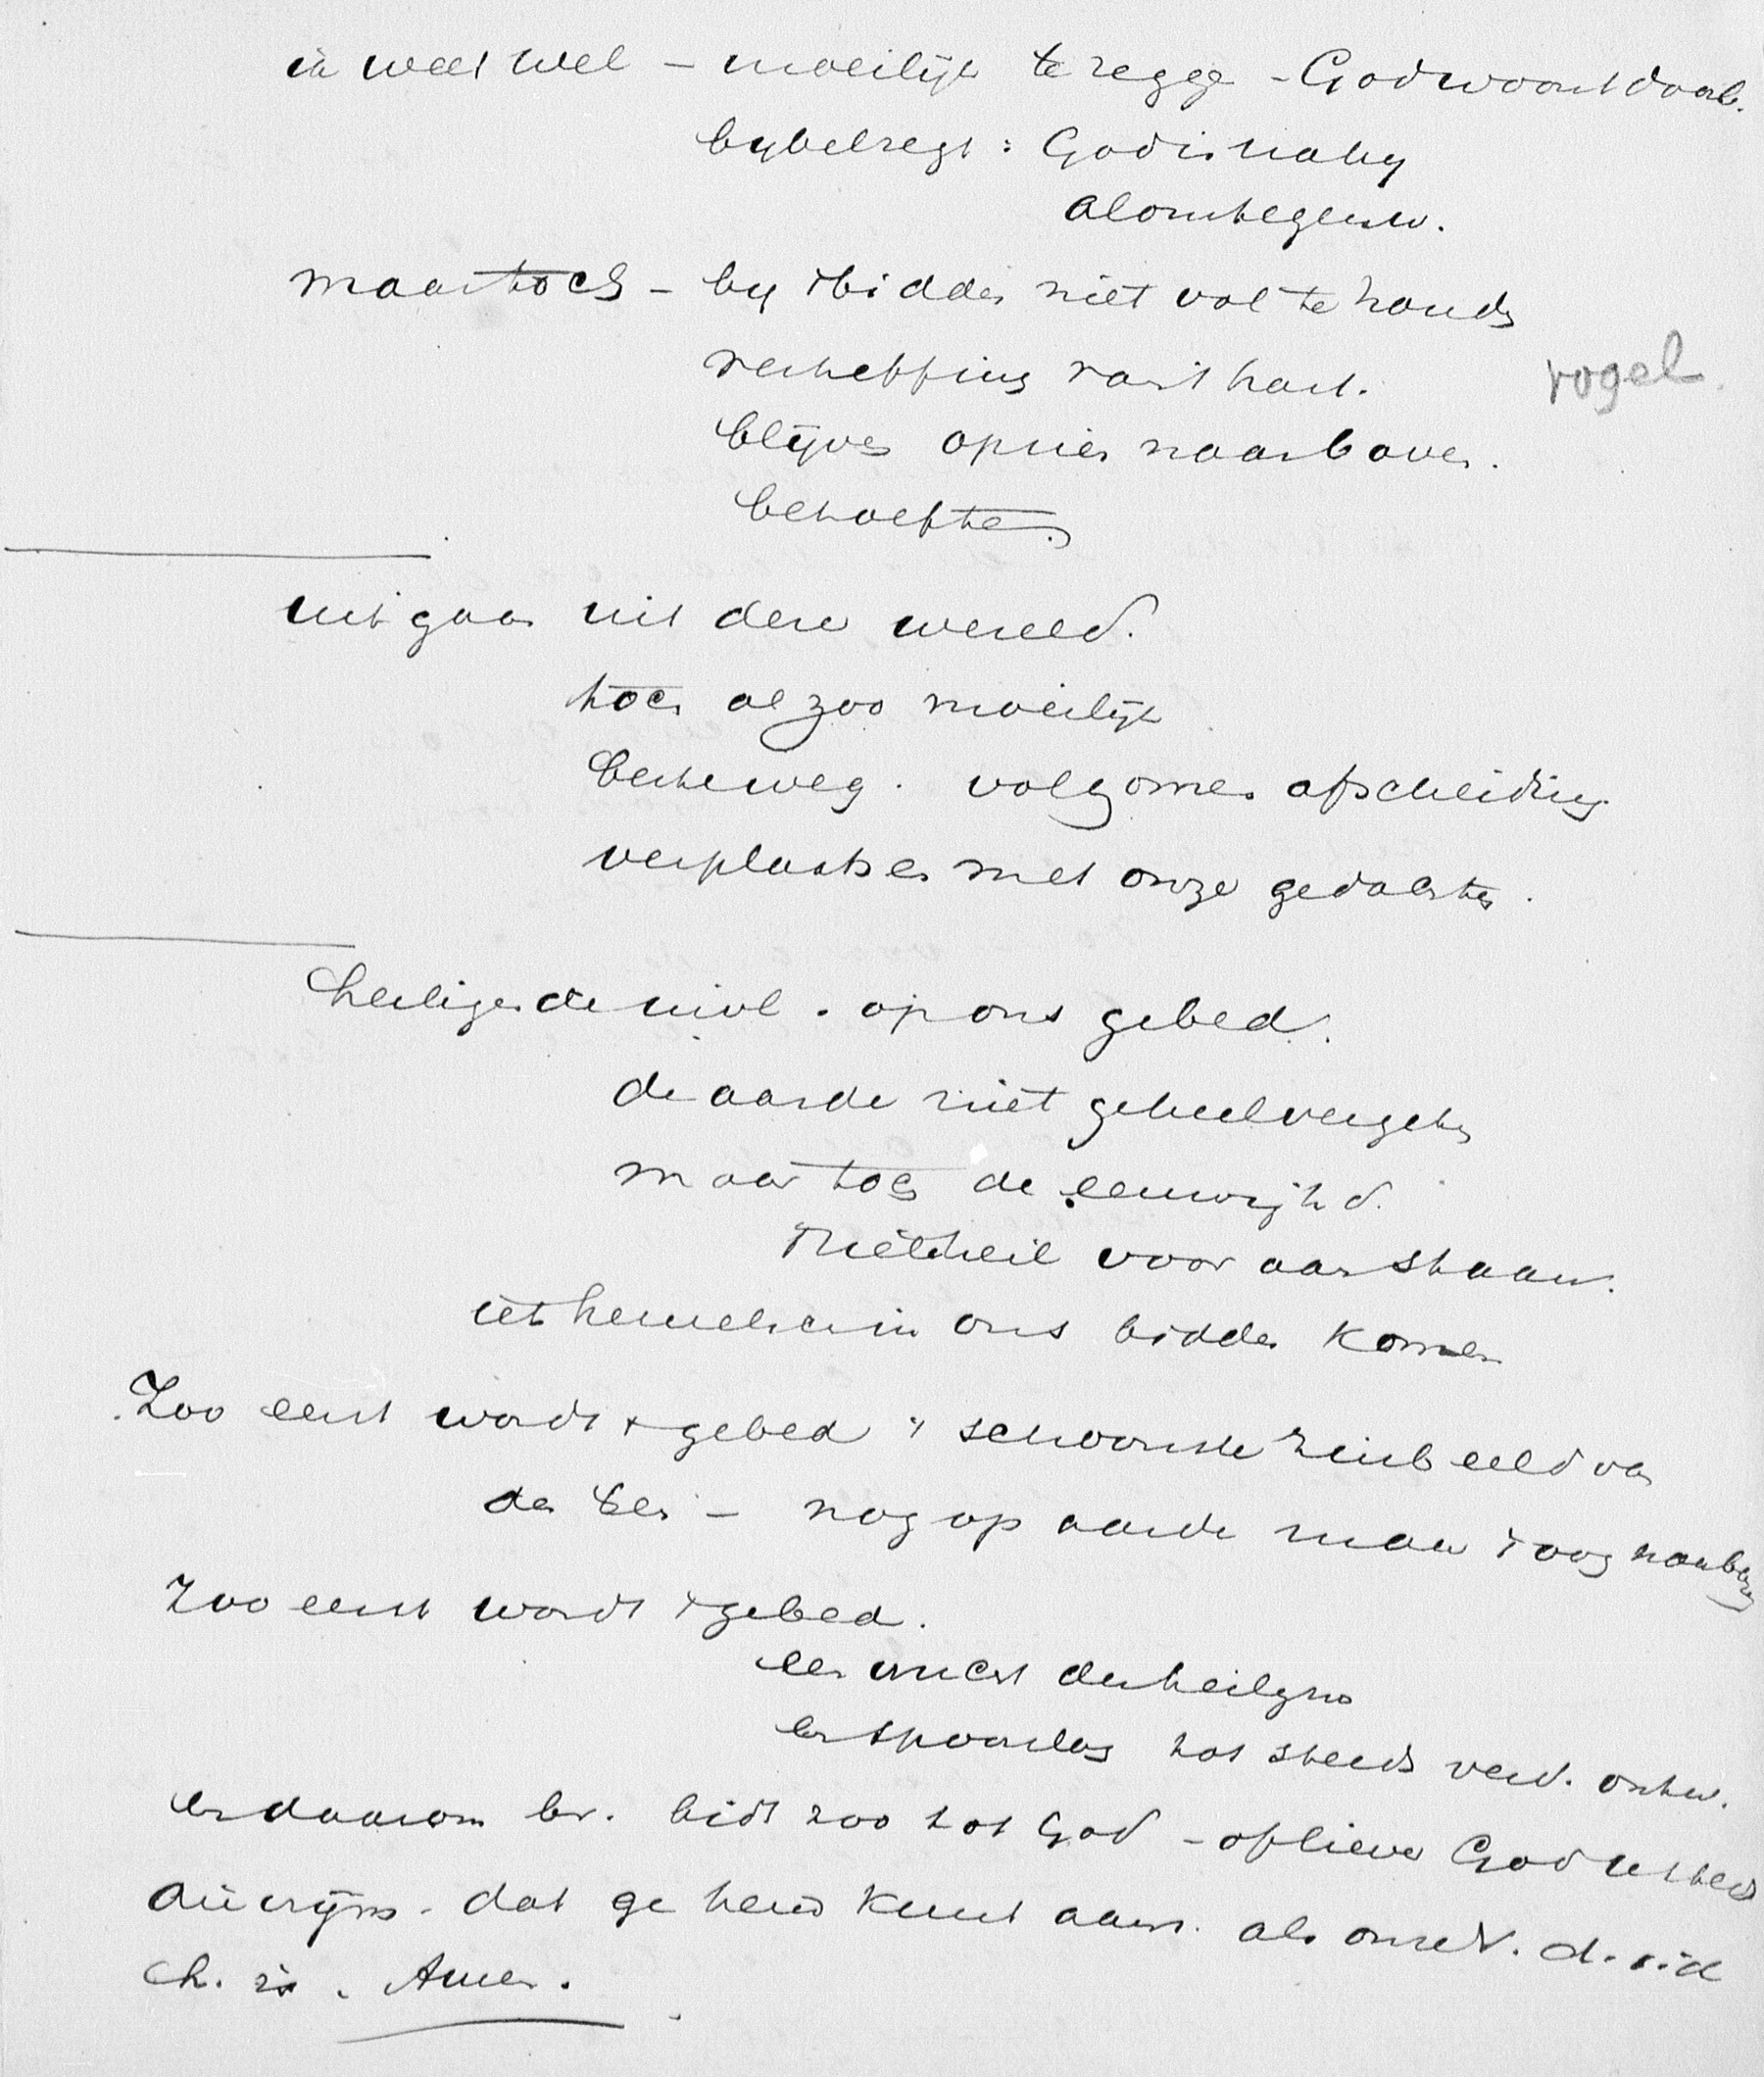 ik weet wel – moeilijk te zegge - God woont daarb.
bybel zegt : God is naby
alomtegenw.
maar toch – by 't bidden niet vol te houden
verheffing van 't hart.
vogel
blijven opzien naar boven.
behoefte
uitgaan uit deze wereld.
toch al zoo moeilijk
beste weg. volkomen afscheiding
verplaatsen met onze gedachten.
heiligende invl. op ons gebed.
de aarde niet geheel vergeten
maar toch de eeuwigh d.
zielheil voor aan staan.
iets hemelsch in ons bidden komen
Zoo eerst wordt 't gebed 't schoonste zinbeeld van
den – nog op aarde maar 't oog naar boven
Zoo eerst wordt 't gebed.
een vrucht der heiligm
en spoorslag tot steeds verd. ontw.
en daarom br. bidt zoo tot God – of liever God
dat ge hem kunt aanr. als onze V. d. i. d
h. is. Amen.